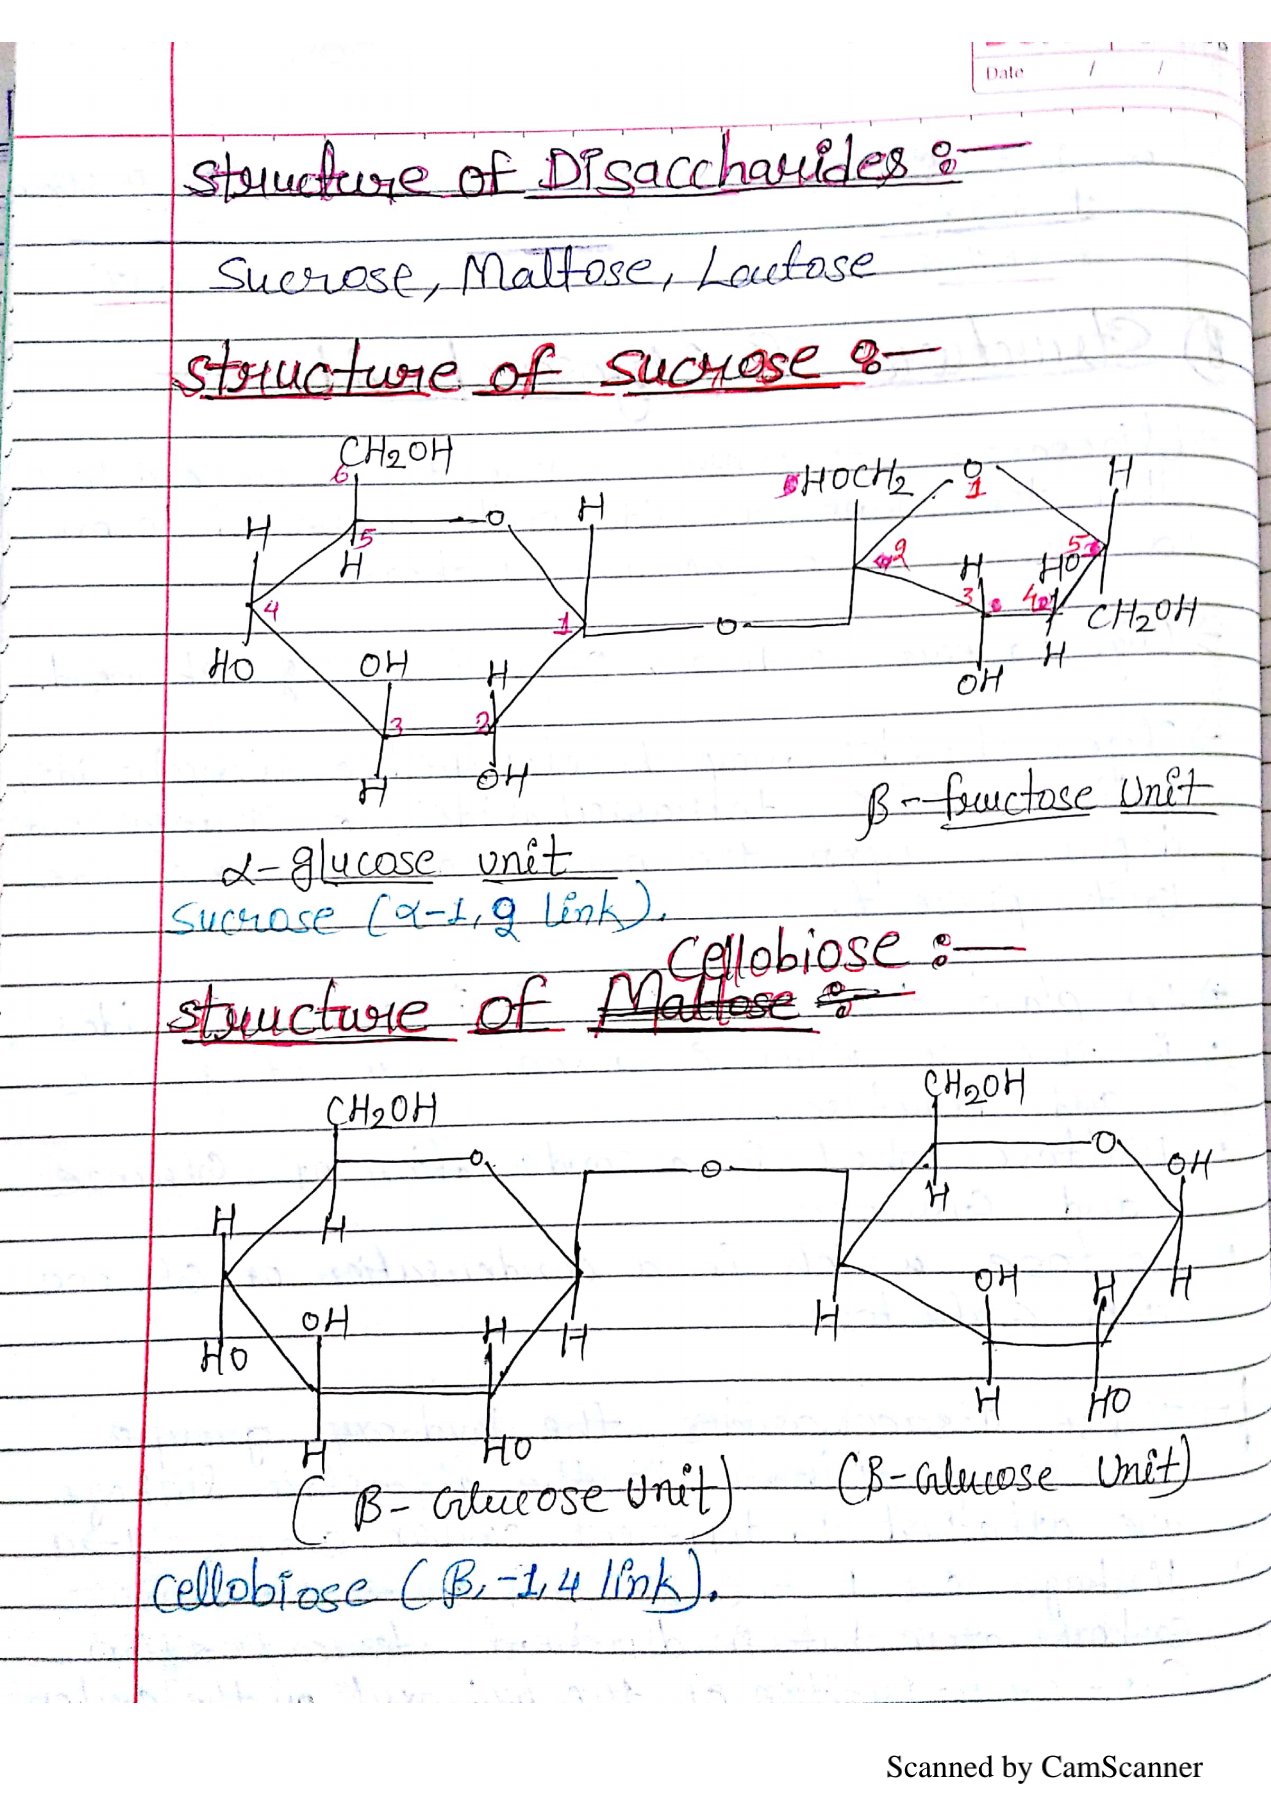 Date / /
Structure of Disaccharides :—
Sucrose, Maltose, Lactose
Structure of Sucrose :—
CH2OH
6
H
5
O
H
H
4
HO
OH
3
H
H
2
OH
1
O
HOCH2
O
1
H
2
5
H
HO
3
4
CH2OH
OH
H
β-fructose unit
α-glucose unit
Sucrose (α-1, 2 link).
Cellobiose :—
Structure of Maltose :—
CH2OH
O
H
H
HO
OH
H
H
HO
H
O
CH2OH
O
OH
H
H
OH
H
H
H
HO
(β-Glucose Unit)
(β-Glucose Unit)
Cellobiose (β,-1,4 link).
Scanned by CamScanner